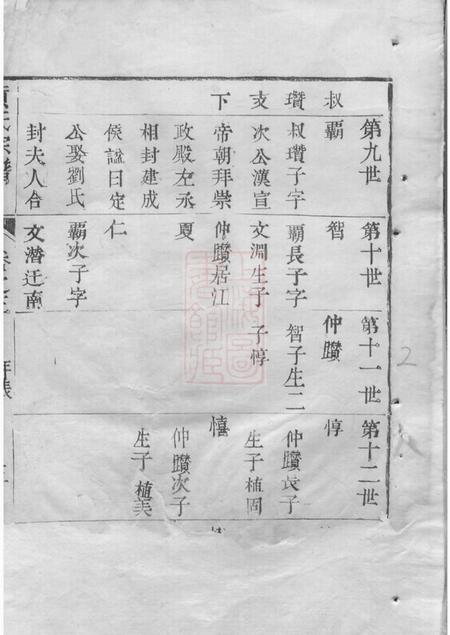 叔瓚支下
第九世
霸
叔瓚子字
次公漢宣
帝朝拜崇
政殿左丞
相封建成
侯諡曰定
公娶劉氏
封夫人合
第十世
智
霸長子字
文淵生子
仲躦居江
夏
仁
霸次子字
文潛迁南
第十一世
仲躦
智子生二
子惇
第十二世
惇
仲躦長子
生子植固
憘
仲躦次子
生子植美
年表
2